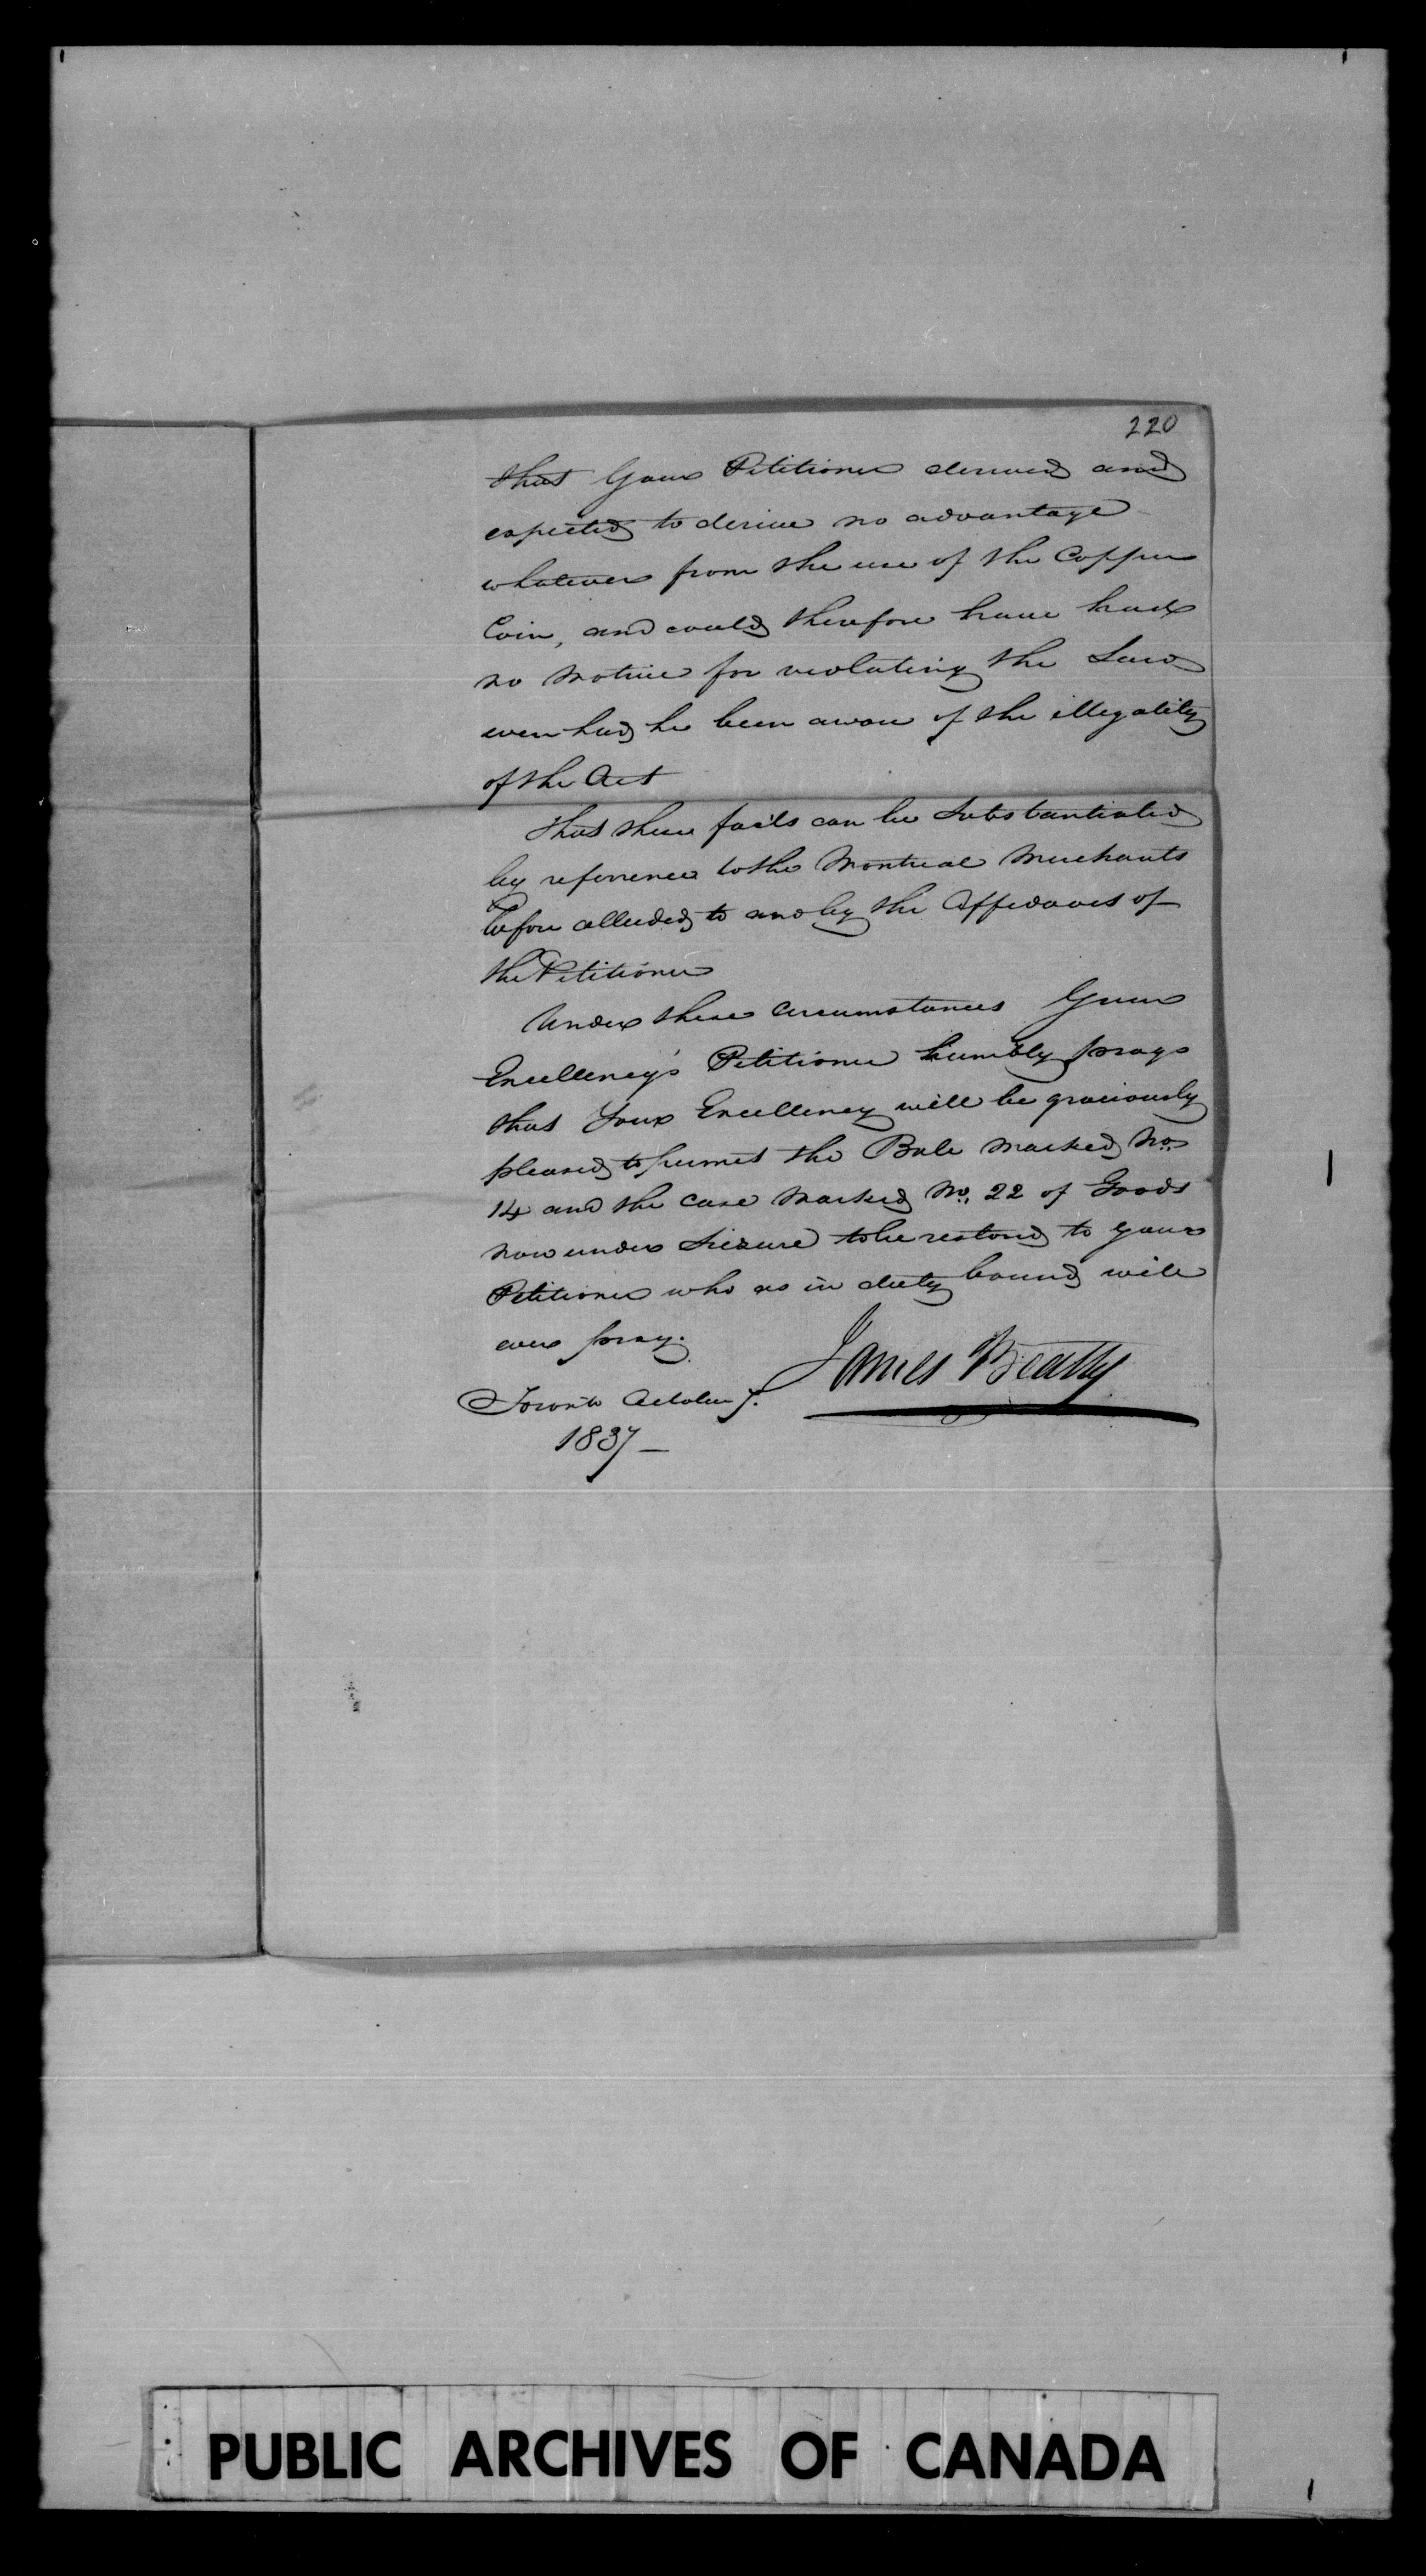 220
that Your Petitioner derived and
expected to derive no advantage
whatever from the use of the Copper
Coin, and could therefore have had
no motive for violating the Law
even had he been aware of the illegality
of the Act
That these facts can be Substantiated
by reference to the Montreal Merchants
before alluded to and by the Affidavit of
the Petitioner
Under these circumstances Your
Excellency's Petitioner humbly prays
that Your Excellency will be graciously
pleased to permit the Bale marked No.
14 and the case marked No. 22 of Goods
now under Siezure to be restored to your
Petitioner who as in duty bound will
ever pray.
James Beatty
Toronto October 7.
1837 —
PUBLIC ARCHIVES OF CANADA